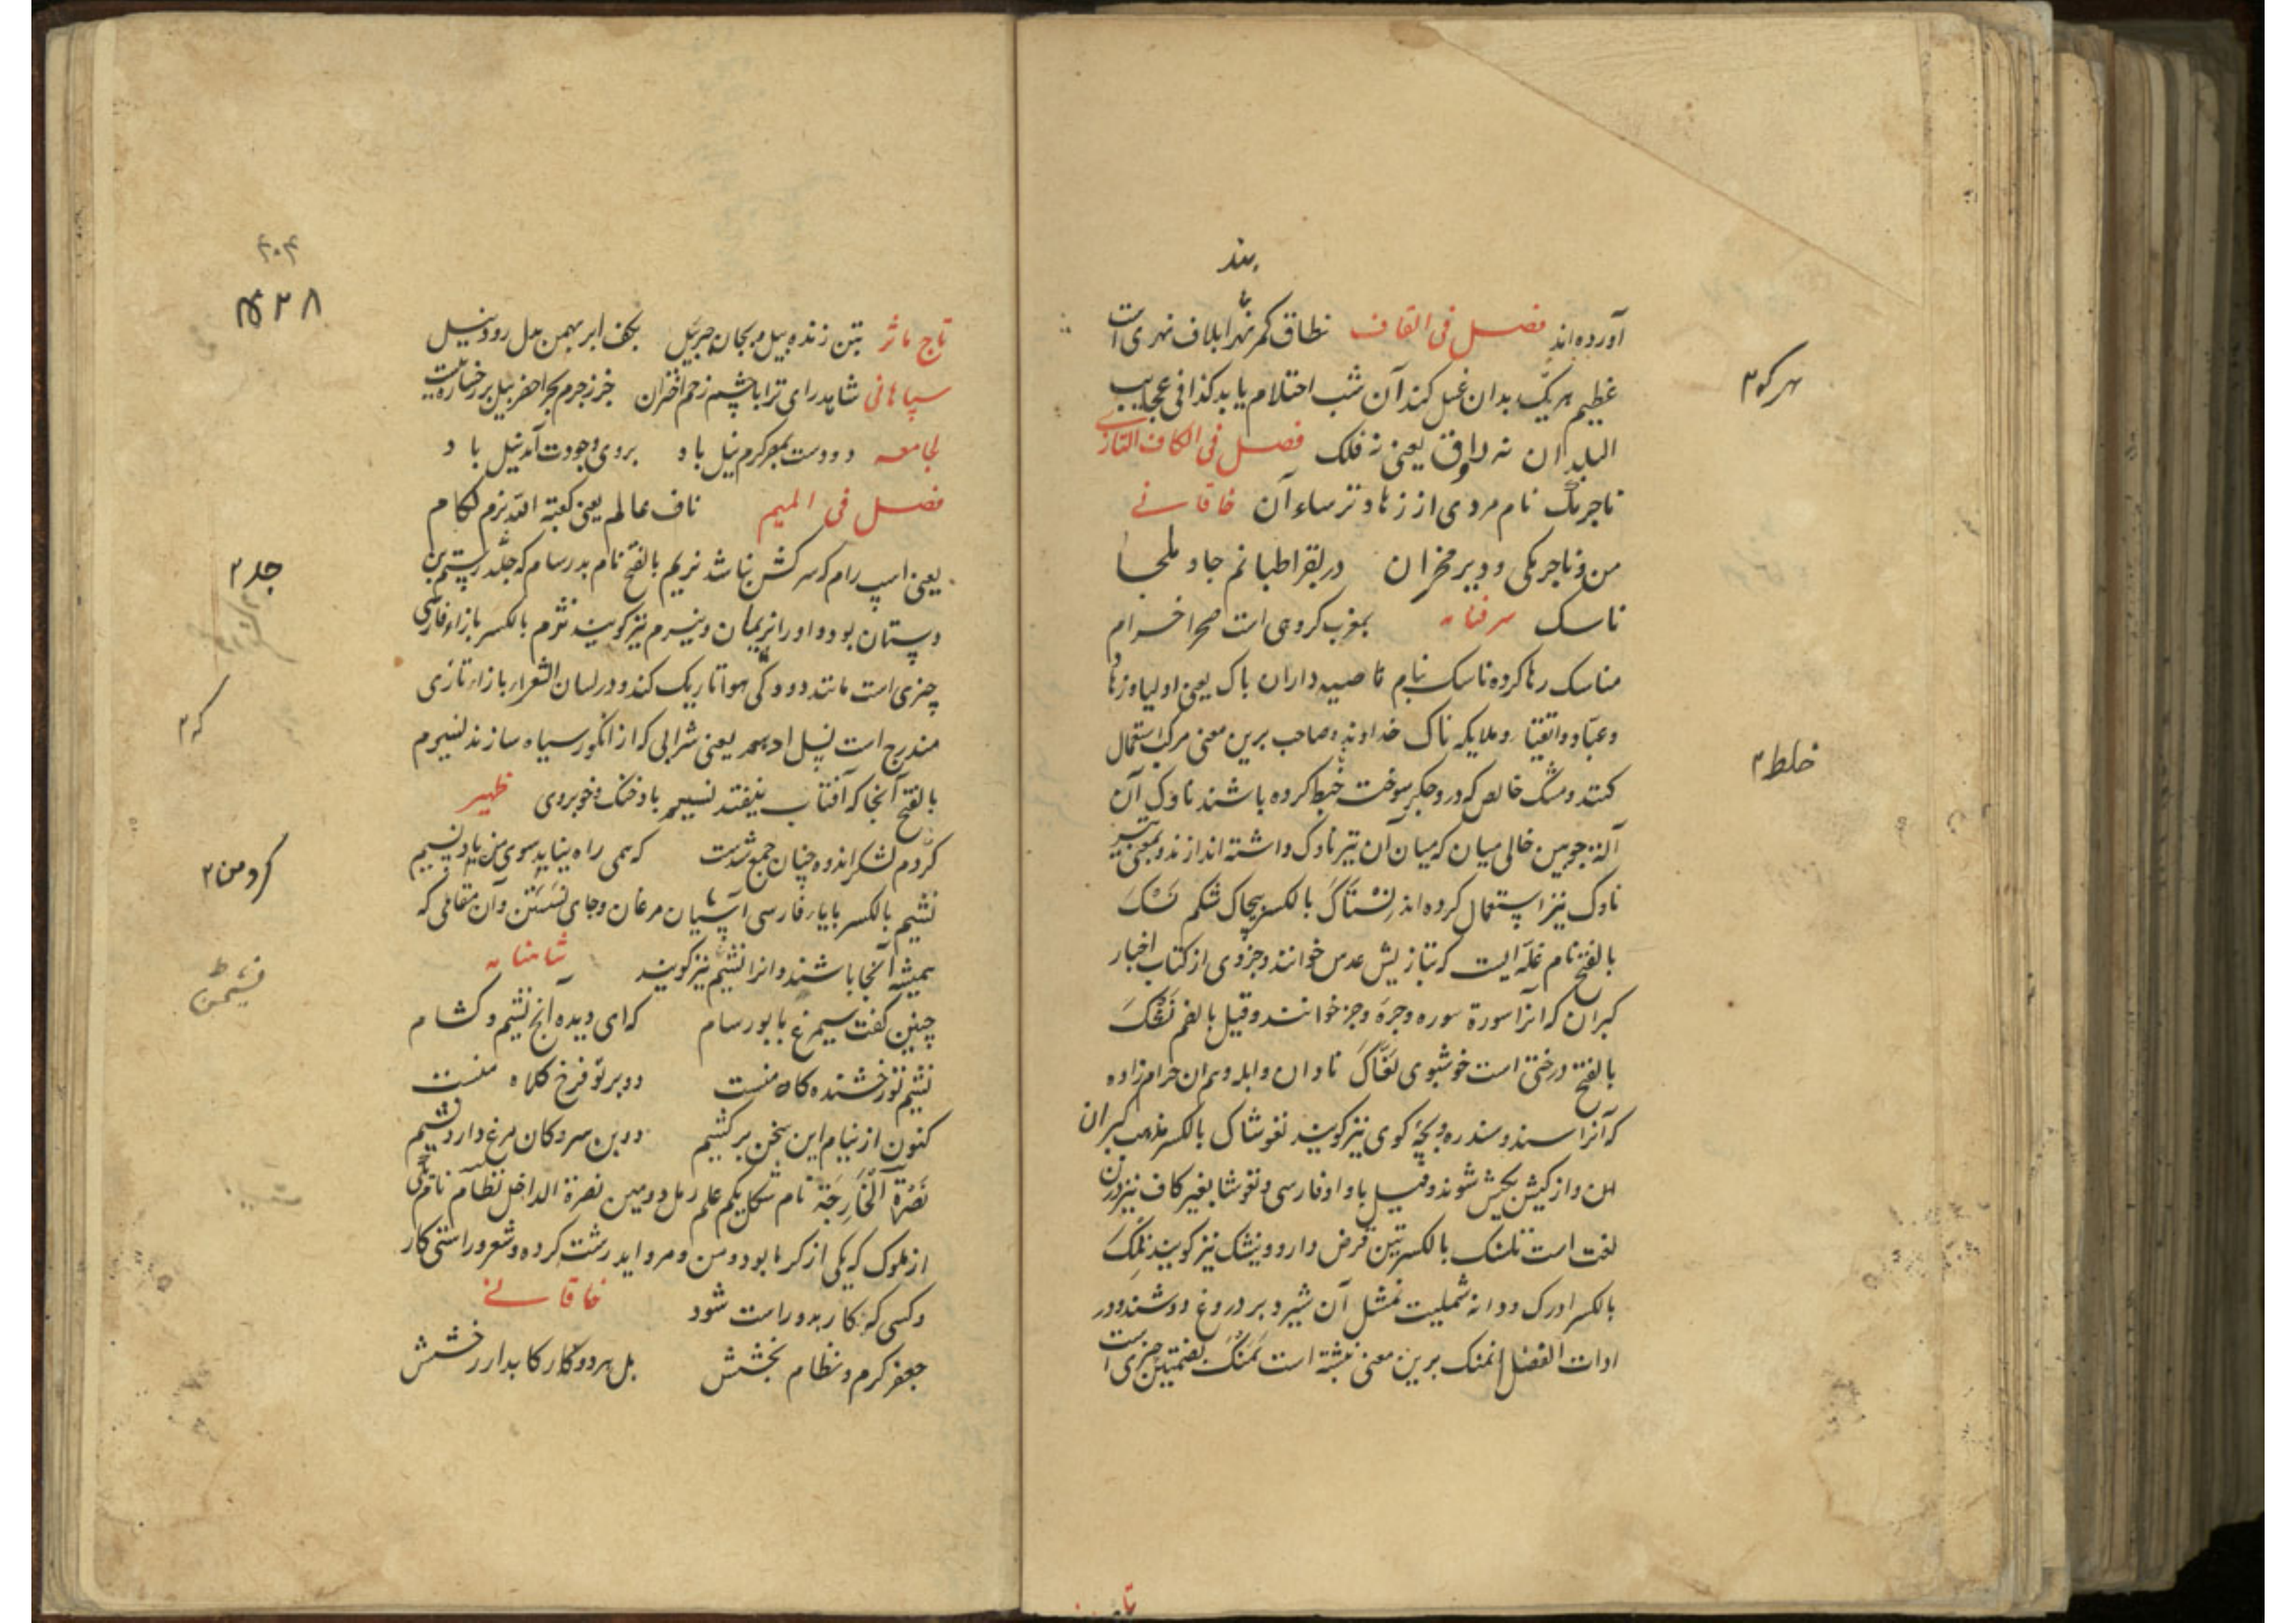 بند
آورده‌اند فصل فی القاف نطاق کمر نهر ابلاف نهری است
عظیم هر یک بدان غسل کند آن شب احتلام یابد کذا فی عجایب
البلدان نه رواق یعنی نه فلک فصل فی الکاف التازی
ناجرمک نام مردی از زهاد ترساء آن خاقانی
من و ناجرمکی و دیر مخران در بقراطیانم جا و ملجا
ناسک سرفنامه بمغرب کروهی است صحرا خرام
مناسک رها کرده ناسک بنام ناصیه داران پاک یعنی اولیا و زهاد
و عباد و اتقیا و ملایکه ناک خداوند و صاحب برین معنی مرکب استعمال
کنند و مشک خالص که درو جگر سوخت خبط کرده باشند ناوک آن
آلت چوبین خالی میان که میان آن تیر ناوک داشته اندازند و بمعنی تیر
ناوک نیز استعمال کرده‌اند نستاک بالکسر پیچاک شکم نسک
بالفتح نام غله ایست که بتازیش عدس خوانند و جزوی از کتاب اخبار
کبران که انرا سورة سوره و جره و جز خوانند و قیل بالضم نشک
بالفتح درختی است خوشبوی نغاک نادان و ابله و هم ان حرام زاده
که آنرا سند و سندره و بچه کوی نیز کویند نغوشاک بالکسر مذهب کبران
و از کیش بکیش شونده و قیل با واو فارسی و نغوشا بغیر کاف نیز درین
لغت است نلنک بالکسر قرض دارو و نیشک نیز کویند نلک
بالکسر ادرک و دانه شملیت نمشک آن شیر و بر دروغ دوشند و در
ادات الفضلا نمنک برین معنی نبشته است نمنک بضمتین چیزی است
سر کو ۲
خلط ۲
۴۰۴
۴۲۸
تاج ماثر بتن زنده پیل و بجان جبرئیل بکف ابر بهمن بدل رود نیل
سپاهانی شاهد رای ترا با چشم زخم اختران جز جرم بحر اخضر نیل بر رخساره نیست
لجامعه دو دست بمعر کرم نیل باد بروی وجودت آمد نیل باد
فصل فی المیم ناف عالم یعنی کعبة الله نرم لکام
یعنی اسپ رام که سر کش نباشد نریم بالفتح نام پدر سام که جد رستم بن
دستان بود و او را نریمان و نیرم نیز کویند نژم بالکسر با زاء فارسی
چیزی است مانند دود کی هوا تاریک کند و در لسان الشعرا با زاء تازی
مندرج است نسل ادهم یعنی شرابی که از انکور سیاه سازند نسیرم
بالفتح آنجا که آفتاب نیفتد نسیم باد خنک و خوبروی ظهیر
کردم لشکر اندوه چنان جمع شدست که همی راه نیابد سوی من باد نسیم
نشیم بالکسر با یاء فارسی آشیان مرغان و جای نشستن و آن مقامی که
همیشه آنجا باشند و انرا نشیم نیز کویند شاهنامه
چنین کفت سیمرغ با پور سام که ای دیده آنج نشیم و کنام
نشیم تو رخشنده کاه منست دو پر تو فرخ کلاه منست
کنون از نیام این سخن بر کشیم دو بن سرو کان مرغ دارد نشیم
نصرة الخارجة نام شکل یکم علم رمل و دومین نصرة الداخل نظام نام یکی
از ملوک که یکی از کرما بود و من و مروارید رشته کرده و شعر و راستی کار
و کسی که کار بدو راست شود خاقانی
جعفر کرم و نظام بخشش بل هر دو رکابدار رخشش
جد ۲
که ۲
کردمن ۲
نشیمن ط